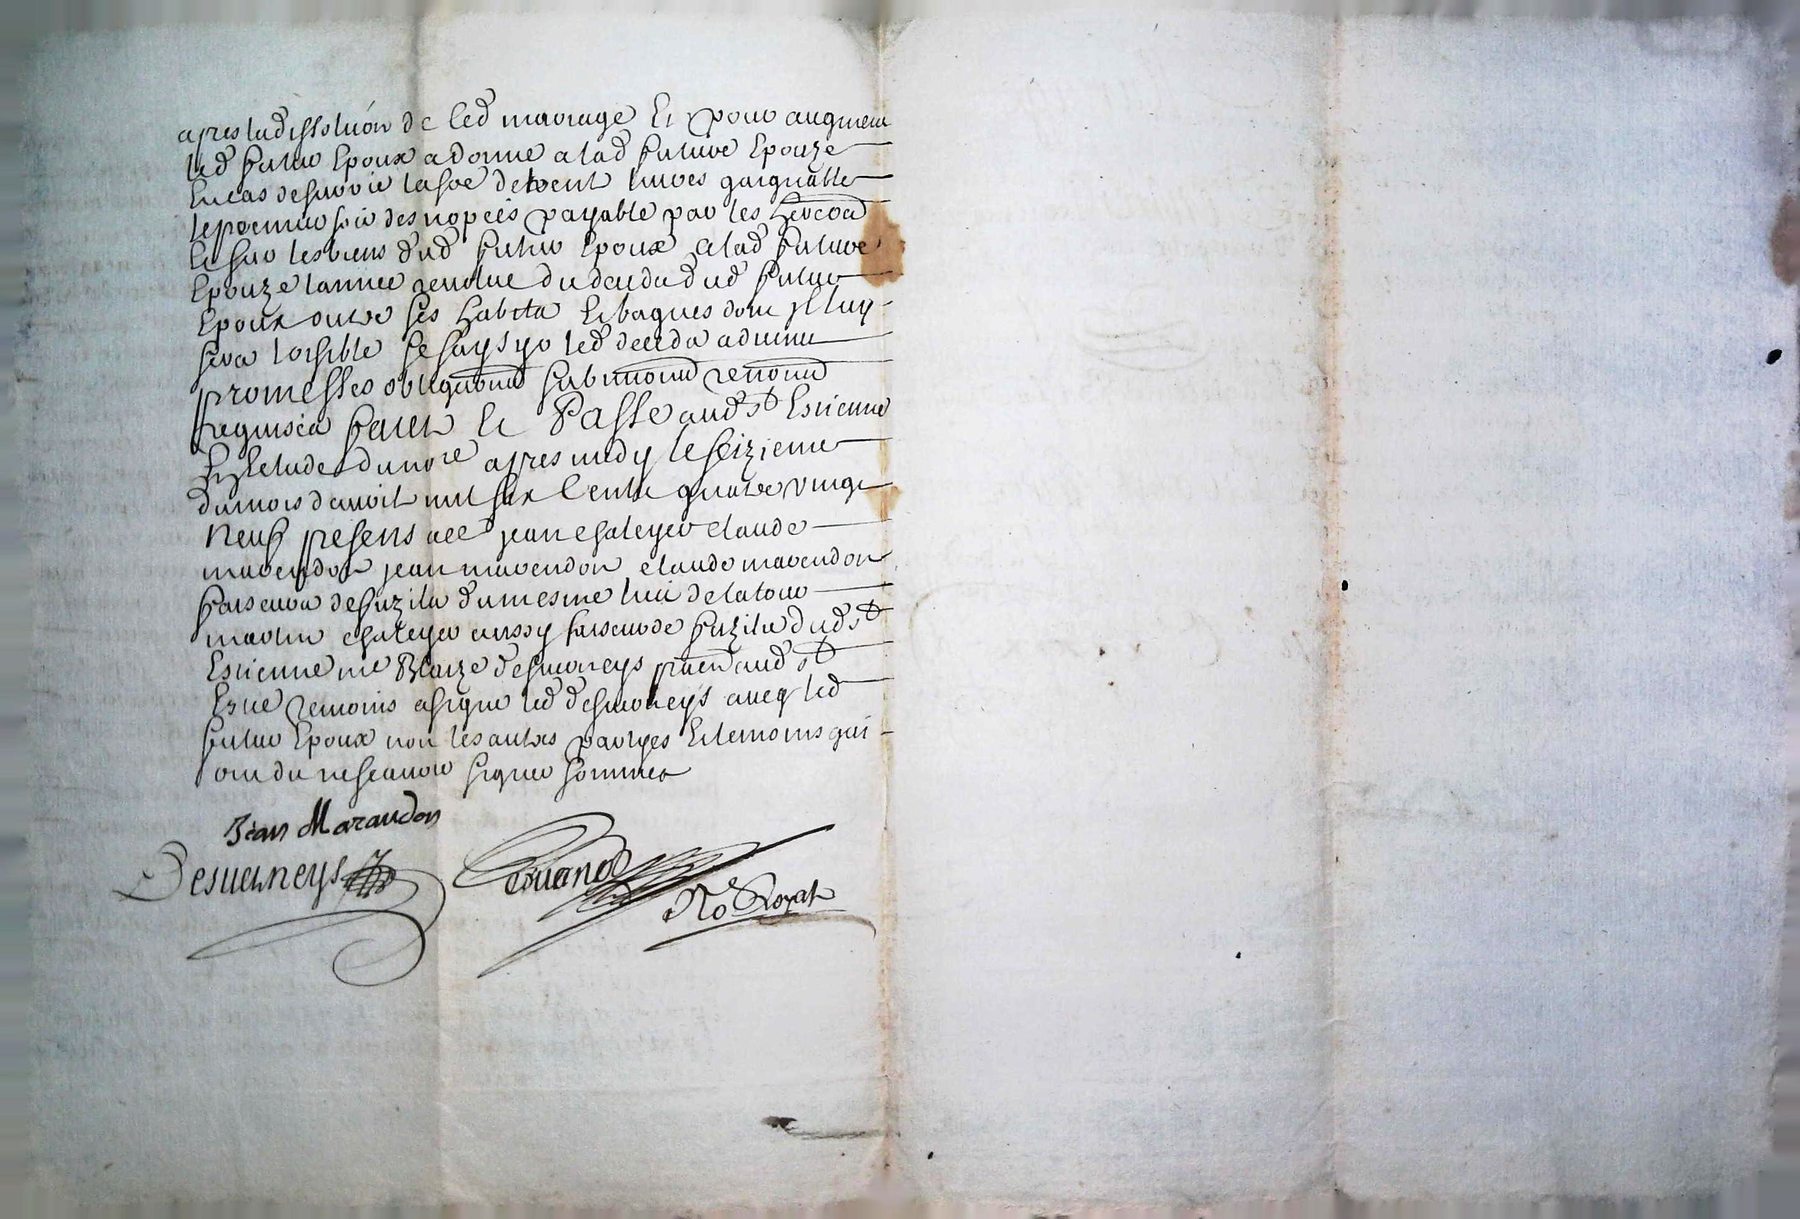 apres la dissoluon de led mariage Et pour augment
led futur Epoux a donne a lad future Epouze
En cas de survie la so͞e de cent livres gaignable
le premier soir des nopces payable par les
Et sur les biens dud futur Epoux a lad future
Epouze lannee revolue du deceds dud futur
Epoux outre ses habits Et bagues dont Il luy
sera loisible se saysyr led deceds advenu
promesses obligaons submons renons
requises faict Et Passe aud St Estienne
Estude du nore apres midy le seizieme
du mois daoust mil six Cents quatre vingt
neuf presens Jean chaleyer claude
marendon jean marendon claude marendon
faiseurs de fuzils du mesme lieu de la tour
martin chaleyer aussy faiseur de fuzils dud St
Estienne me Blaize desverneys praen aud St
Esne temoins a signe led desverneys aveq led
futur Epoux non les autres partyes Et temoins qui
ont dit ne scavoir signer sommes
Jean Marandon
Desverneys
No Royal